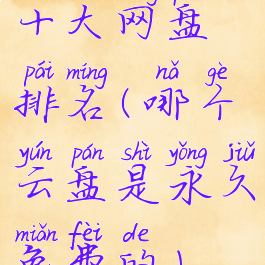 十大网盘
pái míng nǎ gè
排名(哪个
yún pán shì yǒng jiǔ
云盘是永久
miǎn fèi de
免费的)